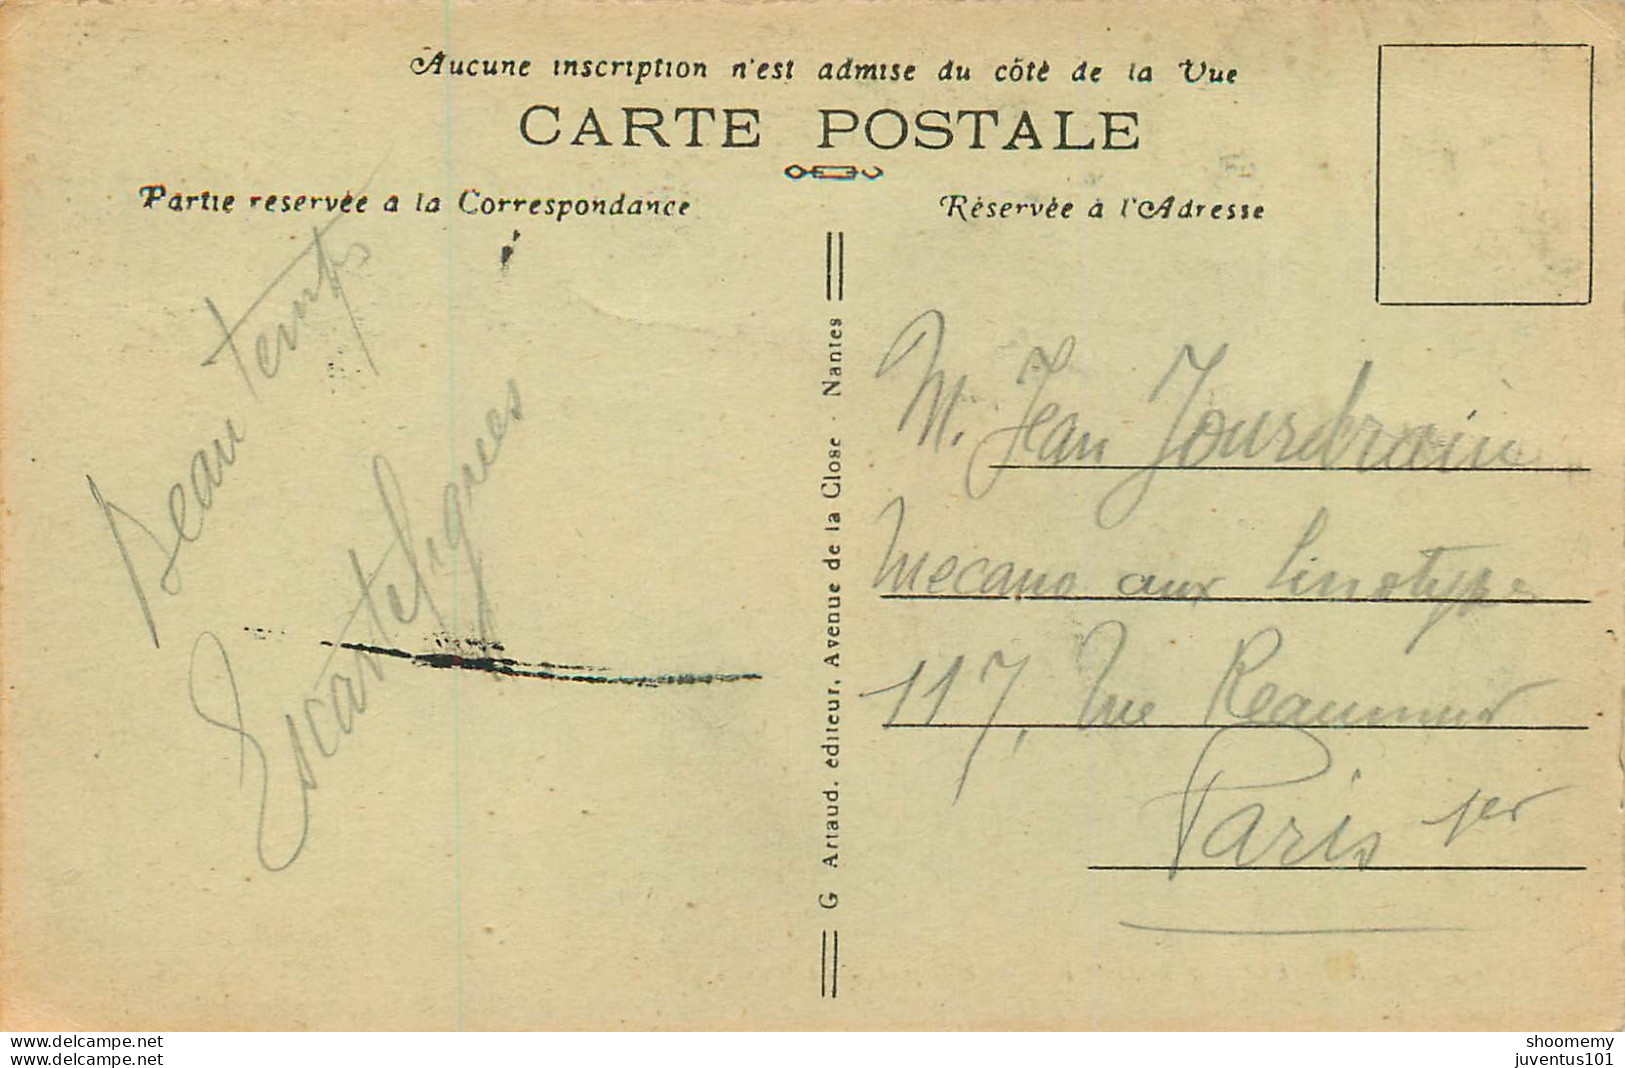 Aucune inscription n'est admise du côté de la Vue
CARTE POSTALE
Partie reservée a la Correspondance
Réservée à l'Adresse
Beau temps
Escartefigues
G Artaud, éditeur, Avenue de la Close - Nantes
M. Jean Jourdrain
Mecano aux linotypes
117, Rue Reaumur
Paris 1er
www.delcampe.net
shoomemy
juventus101